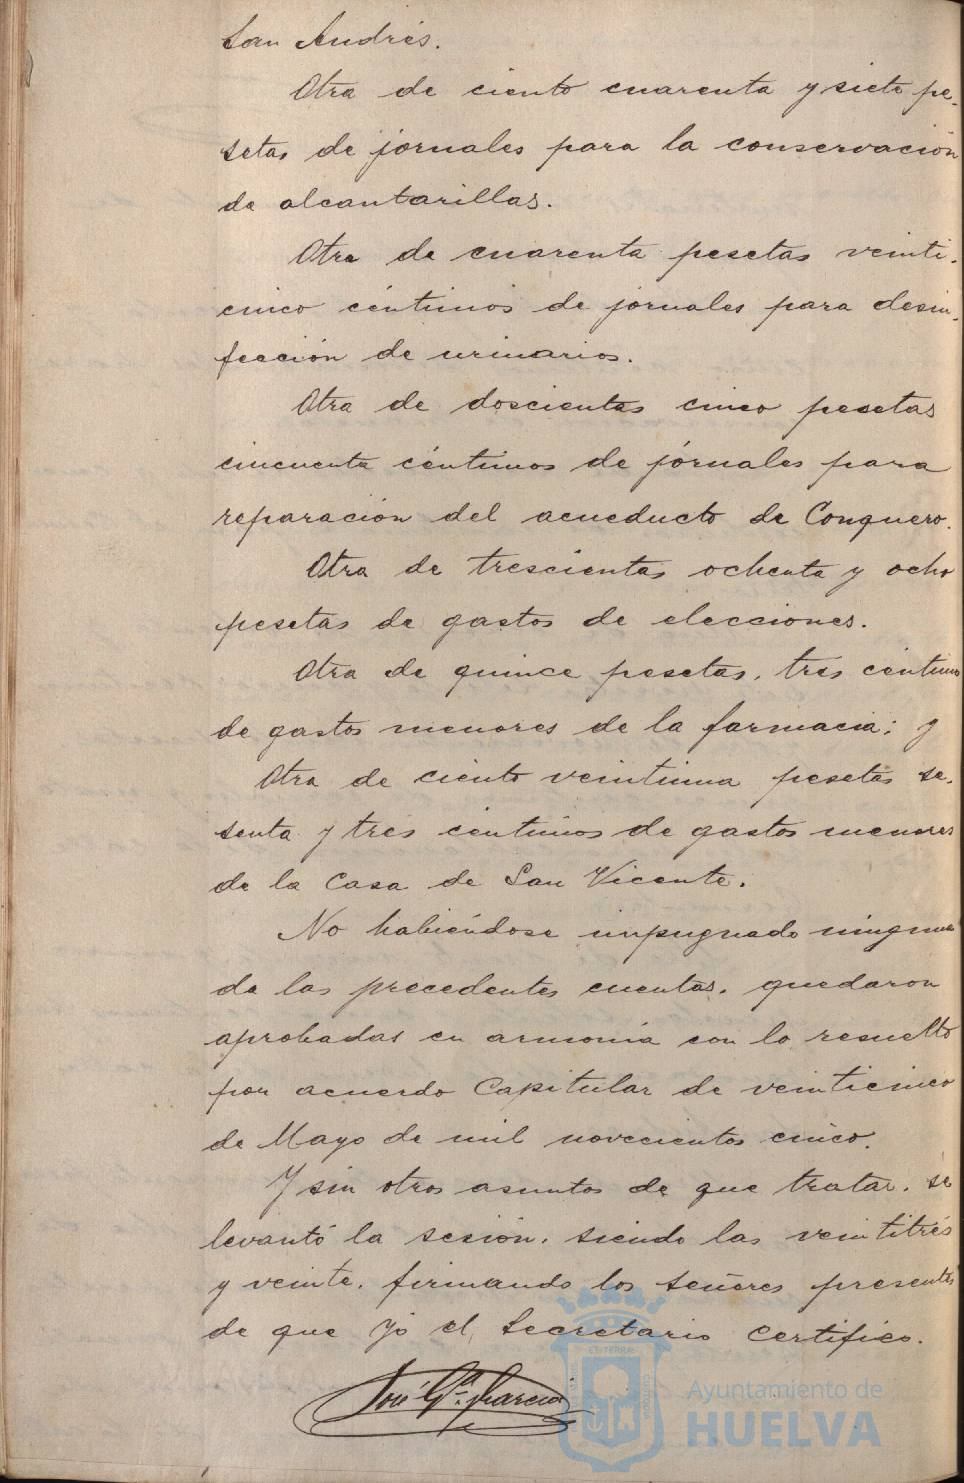 San Andrés.
Otra de ciento cuarenta y siete pe-
setas de jornales para la conservación
de alcantarillas.
Otra de cuarenta pesetas veinti-
cinco céntimos de jornales para desin-
fección de urinarios.
Otra de doscientas cinco pesetas
cincuenta céntimos de jornales para
reparación del acueducto de Conquero.
Otra de trescientas ochenta y ocho
pesetas de gastos de elecciones.
Otra de quince pesetas, tres céntimos
de gastos menores de la farmacia; y
Otra de ciento veintiuna pesetas se-
senta y tres céntimos de gastos menores
de la Casa de San Vicente.
No habiéndose impugnado ninguna
de las precedentes cuentas, quedaron
aprobadas en armonía con lo resuelto
por acuerdo Capitular de veinticinco
de Mayo de mil novecientos cinco.
Y sin otros asuntos de que tratar, se
levantó la sesión, siendo las veintitrés
y veinte, firmando los señores presentes
de que yo el Secretario certifico.
José Gª García
Ayuntamiento de
HUELVA